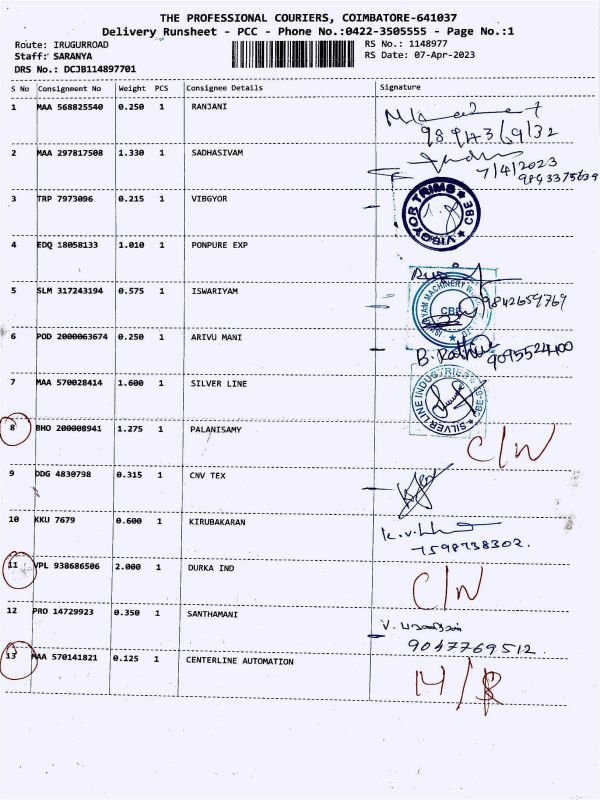 THE PROFESSIONAL COURIERS, COIMBATORE-641037
Delivery Runsheet - PCC - Phone No.:0422-3505555 - Page No.:1
Route: IRUGURROAD RS No.: 1148977
Staff: SARANYA RS Date: 07-Apr-2023
DRS No.: DCJB114897701
S No Consignment No Weight PCS Consignee Details Signature
1 MAA 568825540 0.250 1 RANJANI
2 MAA 297817508 1.330 1 SADHASIVAM
7/4/2023
3 TRP 7973096 0.215 1 VIBGYOR
VIBGYOR TRIMS ★ CBE ★
4 EDQ 18058133 1.010 1 PONPURE EXP
5 SLM 317243194 0.575 1 ISWARIYAM
9842659769
CBE
6 POD 2000063674 0.250 1 ARIVU MANI
7 MAA 570028414 1.600 1 SILVER LINE
SILVER LINE INDUSTRIES ★
8 BHO 200008941 1.275 1 PALANISAMY C/N
9 DDG 4830798 0.315 1 CNV TEX
10 KKU 7679 0.600 1 KIRUBAKARAN
7598738302.
11 VPL 938686506 2.000 1 DURKA IND C/N
12 PRO 14729923 0.350 1 SANTHAMANI
9047769512.
13 MAA 570141821 0.125 1 CENTERLINE AUTOMATION